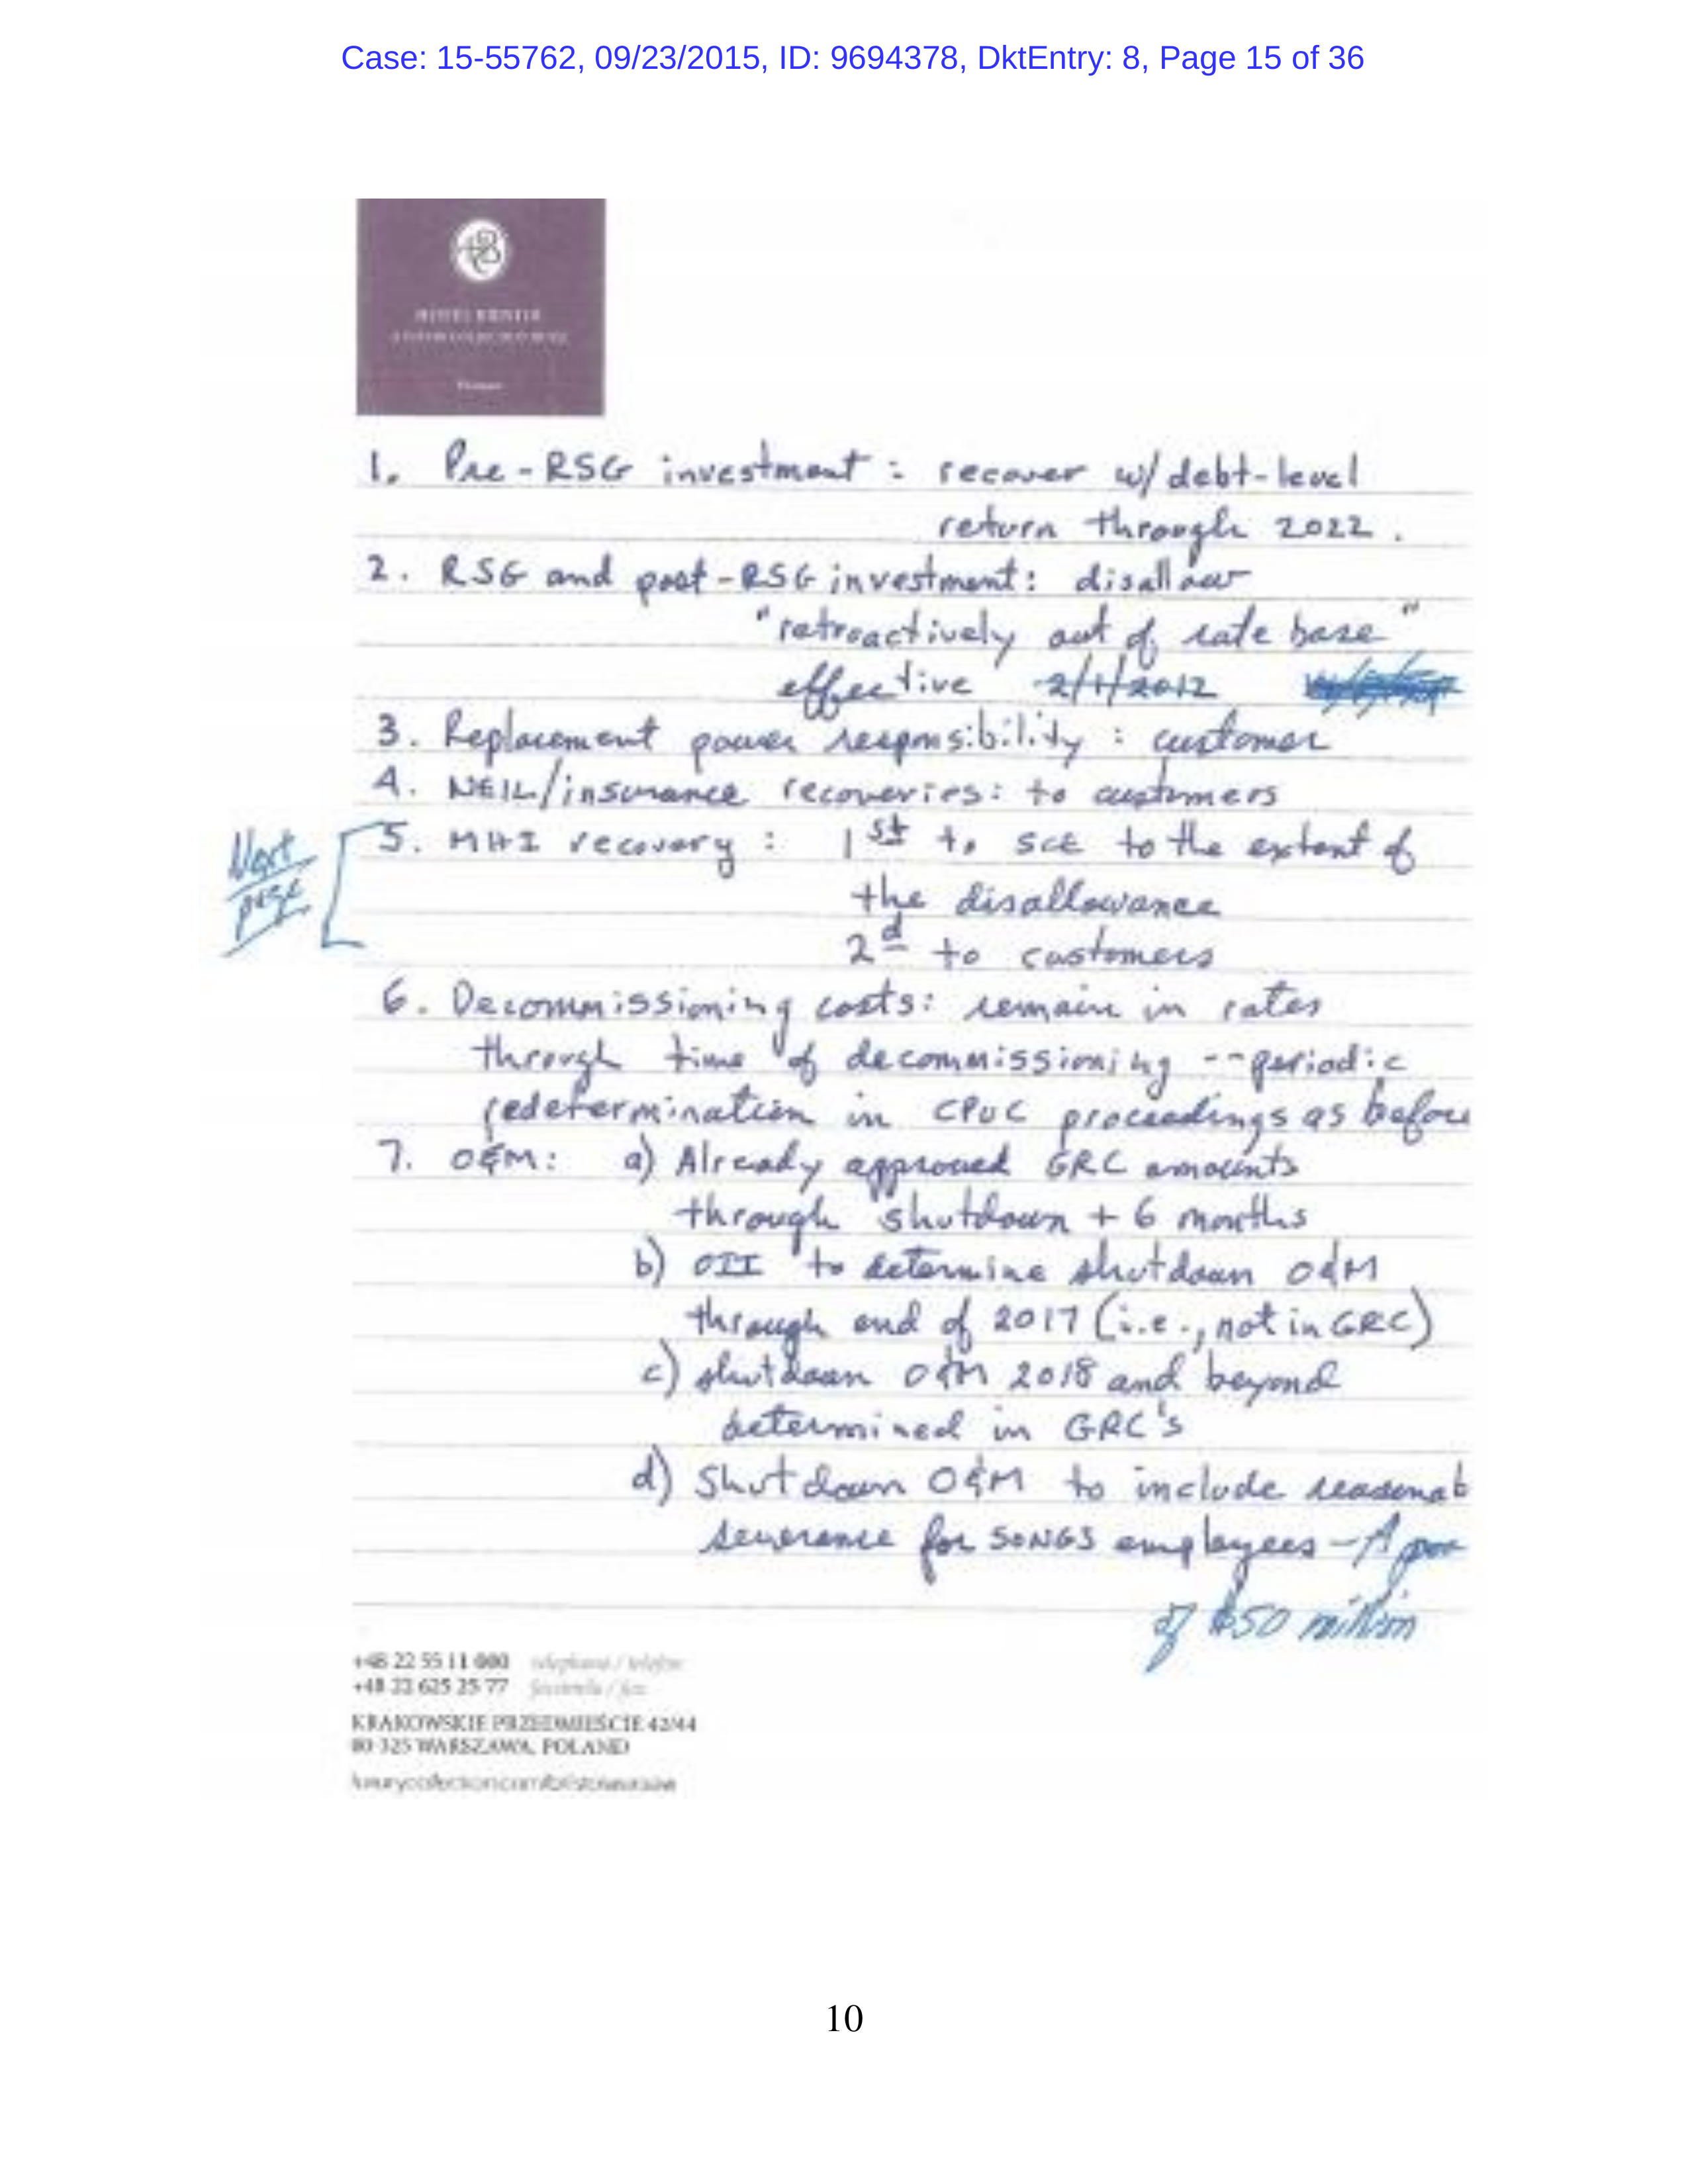 Case: 15-55762, 09/23/2015, ID: 9694378, DktEntry: 8, Page 15 of 36
1. Pre-RSG investment: recover w/debt-level
return through 2022.
2. RSG and post-RSG investment: disallow
"retroactively out of rate base"
effective 2/1/2012
3. Replacement power responsibility: customer
4. NEIL/insurance recoveries: to customers
Next
page
5. MHI recovery: 1st to SCE to the extent of
the disallowance
2d to customers
6. Decommissioning costs: remain in rates
through time of decommissioning -- periodic
redetermination in CPUC proceedings as before
7. O&M: a) Already approved GRC amounts
through shutdown + 6 months
b) OII to determine shutdown O&M
through end of 2017 (i.e., not in GRC)
c) shutdown O&M 2018 and beyond
determined in GRC's
d) Shutdown O&M to include reasonab
severance for SONGS employees – A
of $50 million
+48 22 55 11 000 telephone / telefon
+48 22 625 25 77 facsimile / fax
KRAKOWSKIE PRZEDMIEŚCIE 42/44
00 325 WARSZAWA, POLAND
luxurycollection.com/bristolwarsaw
10